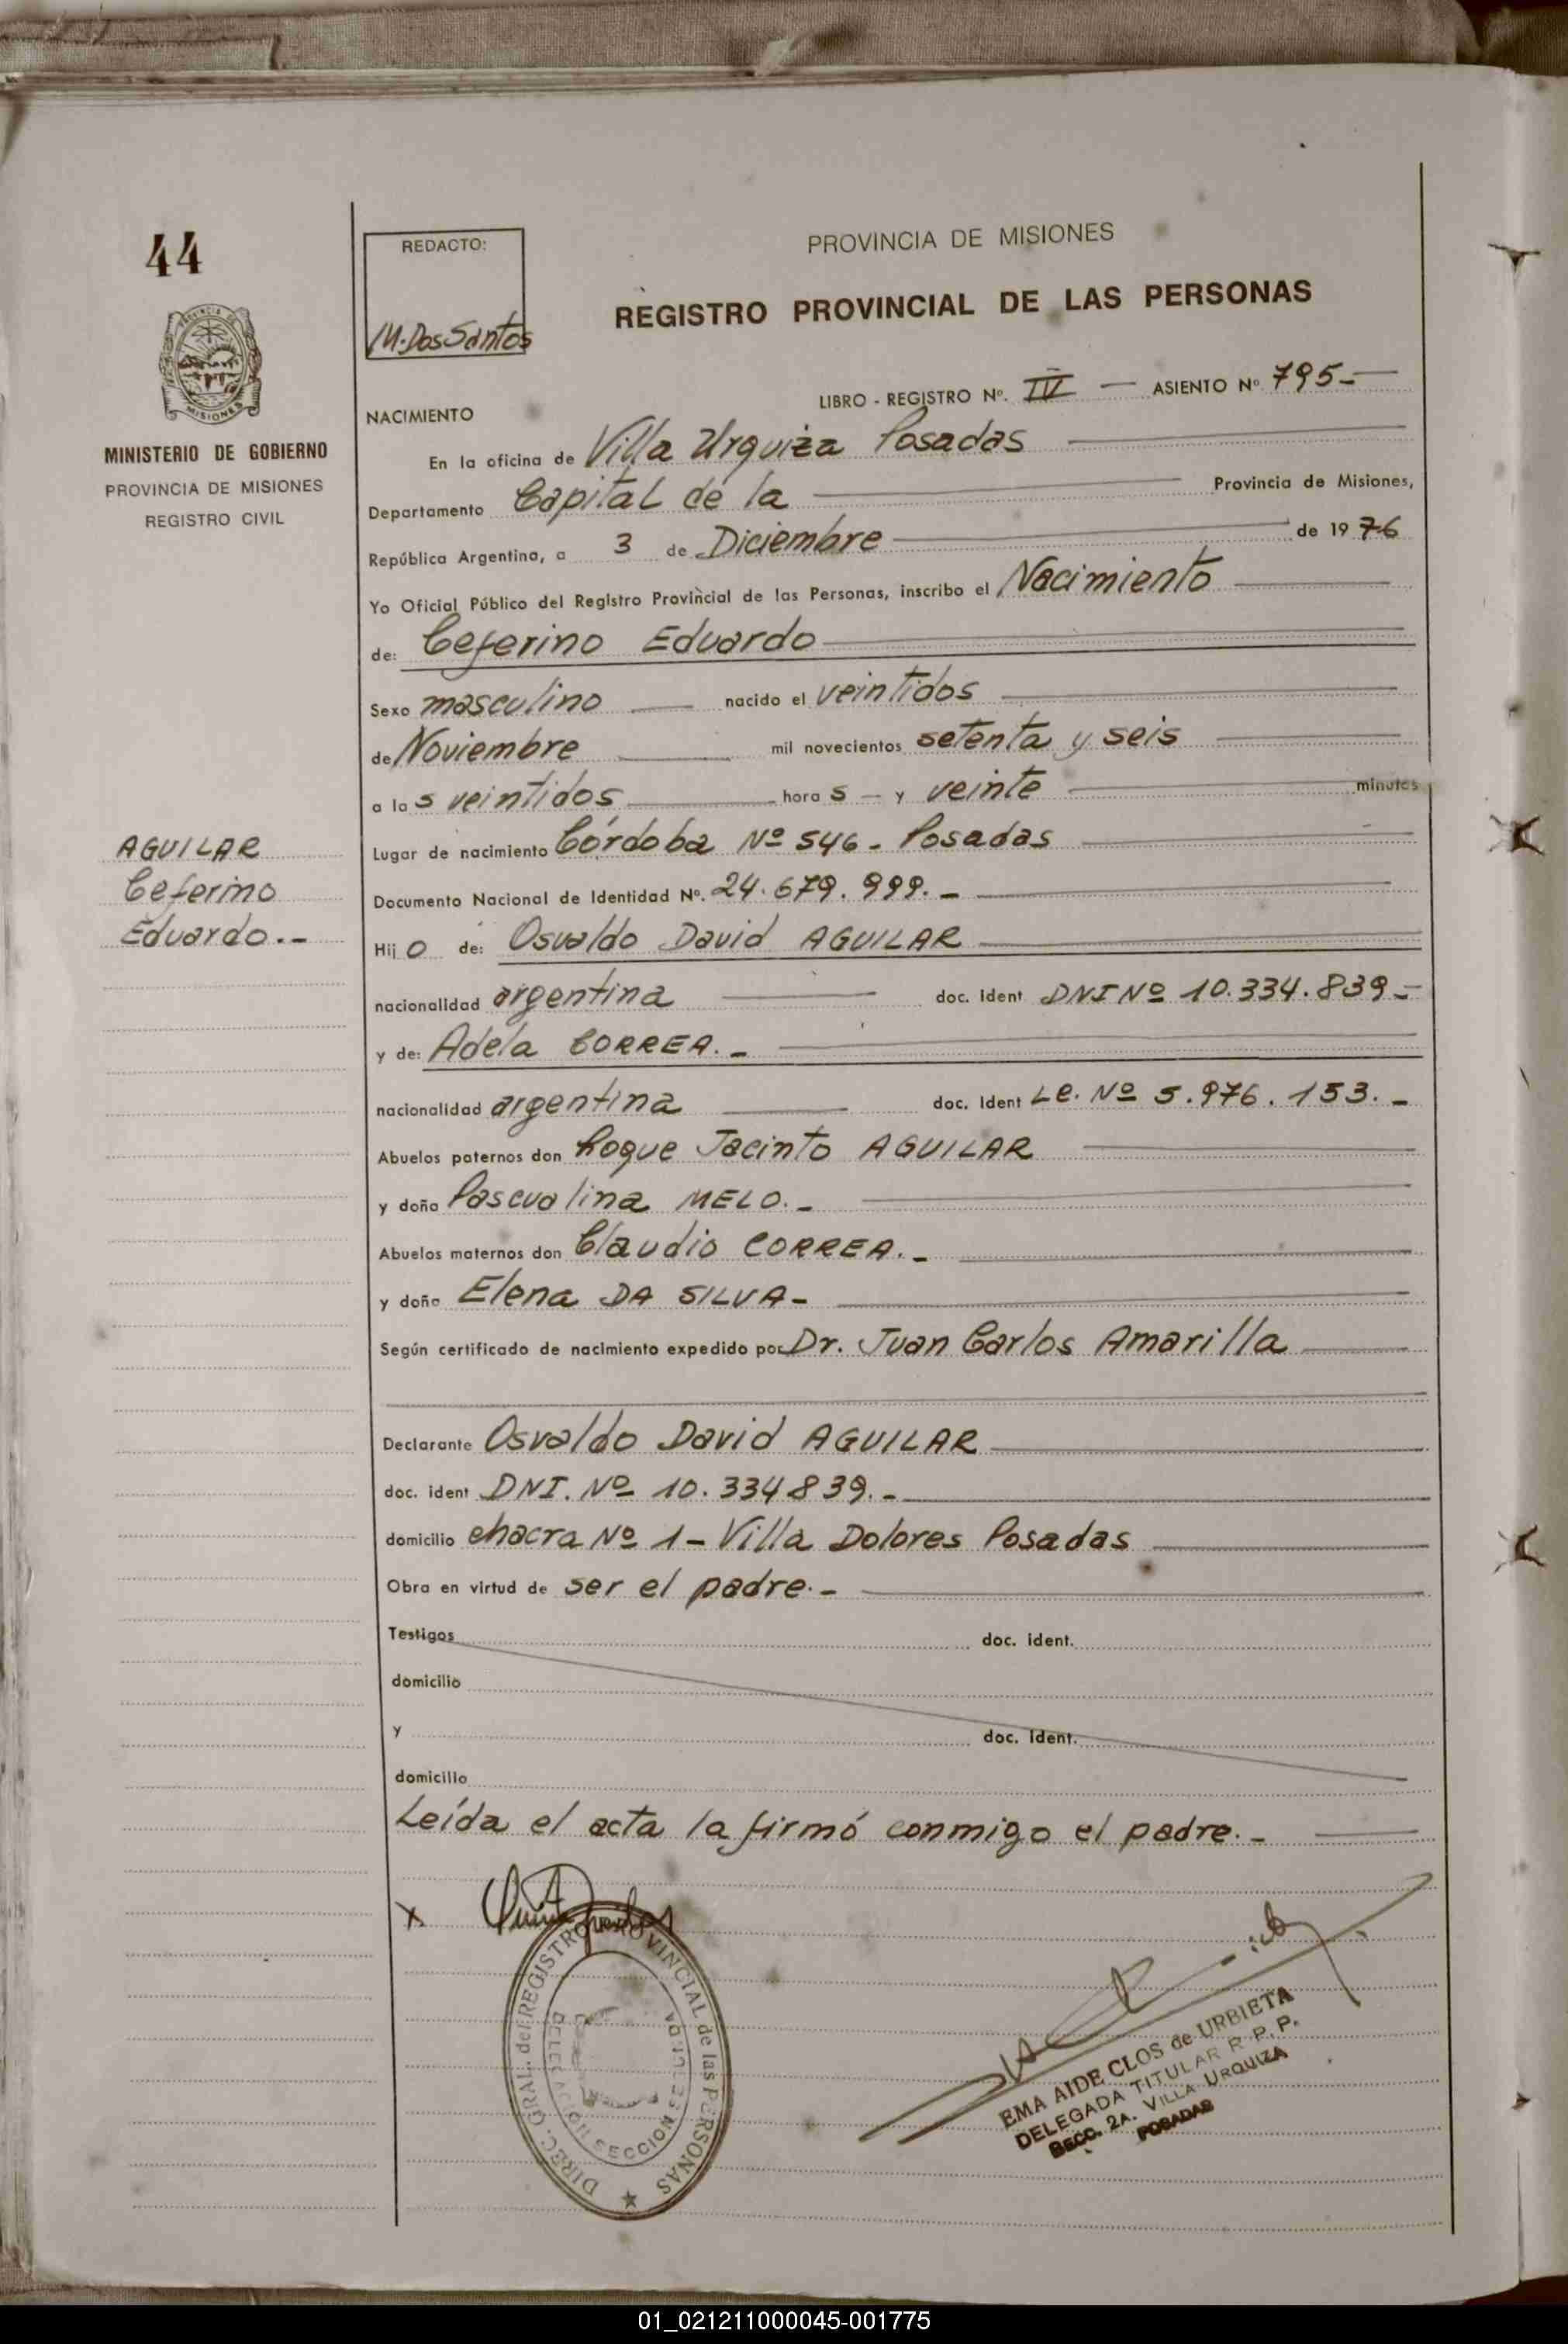 44
REDACTO:
M. Dos Santos
PROVINCIA DE MISIONES
REGISTRO PROVINCIAL DE LAS PERSONAS
MISIONES
MINISTERIO DE GOBIERNO
PROVINCIA DE MISIONES
REGISTRO CIVIL
LIBRO - REGISTRO Nº. IV — ASIENTO Nº 795.-
NACIMIENTO
En la oficina de Villa Urquiza Posadas
Departamento Capital de la Provincia de Misiones,
República Argentina, a 3 de Diciembre de 1976
Yo Oficial Público del Registro Provincial de las Personas, inscribo el Nacimiento
de: Ceferino Eduardo
Sexo masculino nacido el veintidos
de Noviembre mil novecientos setenta y seis
a las veintidos horas - y veinte minutos
Lugar de nacimiento Córdoba Nº 546 - Posadas
Documento Nacional de Identidad Nº. 24.679.999.-
AGUILAR
Ceferino
Eduardo.-
Hijo de: Osvaldo David AGUILAR
nacionalidad argentina doc. Ident DNI Nº 10.334.839.-
y de: Adela CORREA.-
nacionalidad argentina doc. Ident Lc. Nº 5.976.153.-
Abuelos paternos don Roque Jacinto AGUILAR
y doña Pascualina MELO.-
Abuelos maternos don Claudio CORREA.-
y doña Elena DA SILVA-
Según certificado de nacimiento expedido por Dr. Juan Carlos Amarilla
Declarante Osvaldo David AGUILAR
doc. ident DNI. Nº 10.334839.-
domicilio chacra Nº 1 - Villa Dolores Posadas
Obra en virtud de ser el padre.-
Testigos doc. ident.
domicilio
y doc. ident.
domicilio
Leída el acta la firmó conmigo el padre.-
x
DIREC. GRAL. del REGISTRO PROVINCIAL de las PERSONAS
DELEGACION SECCION
EMA AIDE CLOS de URBIETA
DELEGADA TITULAR R.P.P.
SECC. 2A. VILLA URQUIZA
POSADAS
01_021211000045-001775